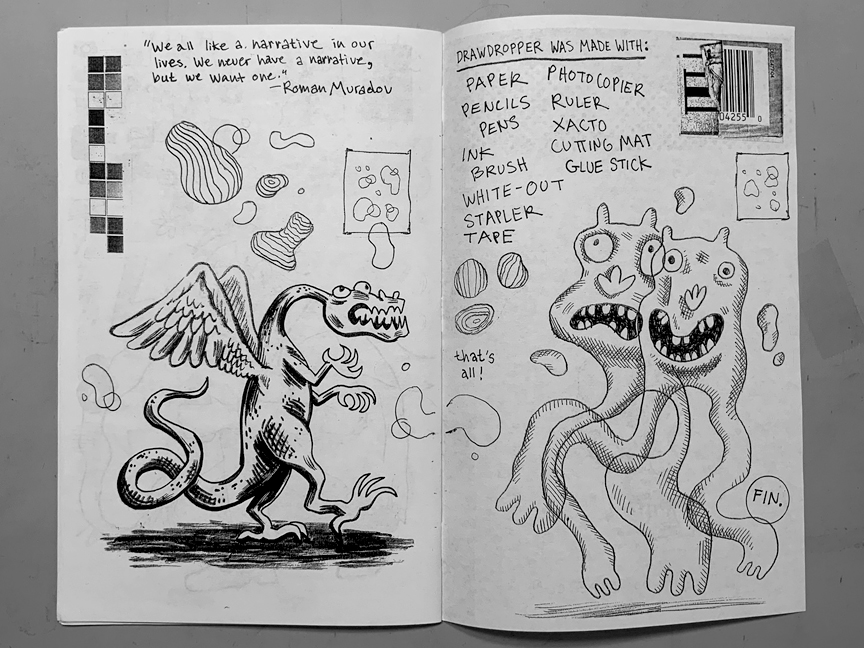 "We all like a narrative in our
lives. We never have a narrative,
but we want one."
—Roman Muradov
DRAWDROPPER WAS MADE WITH:
PAPER
PENCILS
PENS
INK
BRUSH
WHITE-OUT
STAPLER
TAPE
PHOTOCOPIER
RULER
XACTO
CUTTING MAT
GLUE STICK
04255 0
that's
all!
FIN.